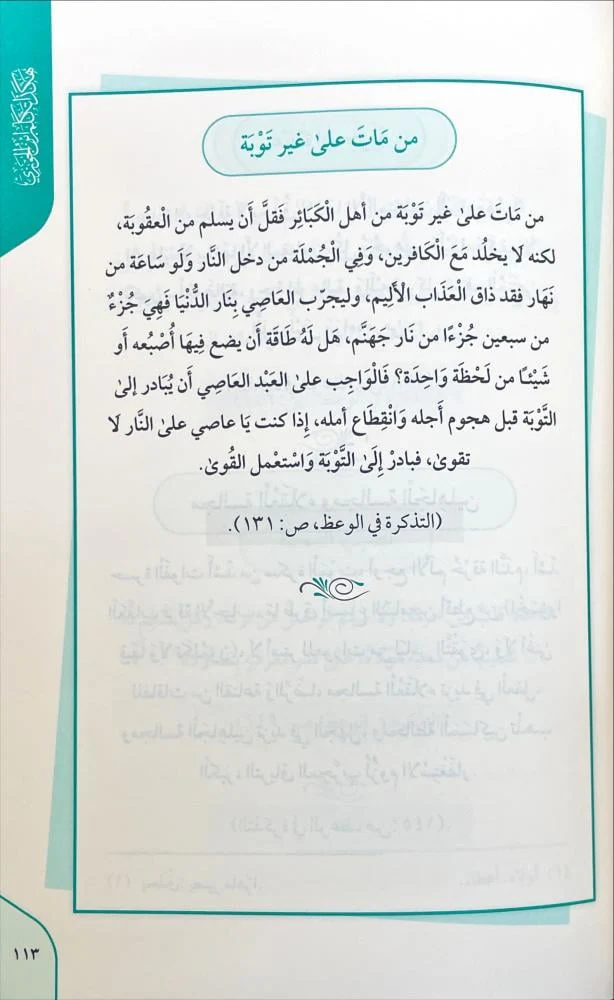 هكذا تكلم ابن الجوزي
من مَاتَ علىٰ غير تَوْبَة
من مَاتَ علىٰ غير تَوْبَة من أهل الْكَبَائِر فَقلَّ أَن يسلم من الْعقُوبَة،
لكنه لَا يخلُد مَعَ الْكَافرين، وَفِي الْجُمْلَة من دخل النَّار وَلَو سَاعَة من
نَهَار فقد ذاق الْعَذَاب الْأَلِيم، وليجرب العَاصِي بِنَار الدُّنْيَا فَهِيَ جُزْءٌ
من سبعين جُزْءًا من نَار جَهَنَّم، هَل لَهُ طَاقَة أَن يضع فِيهَا أُصْبُعه أَو
شَيْئًا من لَحْظَة وَاحِدَة؟ فَالْوَاجِب علىٰ العَبْد العَاصِي أَن يُبَادر إلىٰ
التَّوْبَة قبل هجوم أَجله وَانْقِطَاع أمله، إِذا كنت يَا عاصي علىٰ النَّار لَا
تقوىٰ، فبادرْ إِلَىٰ التَّوْبَة وَاسْتعْمل القُوىٰ.
(التذكرة في الوعظ، ص: ١٣١).
١١٣